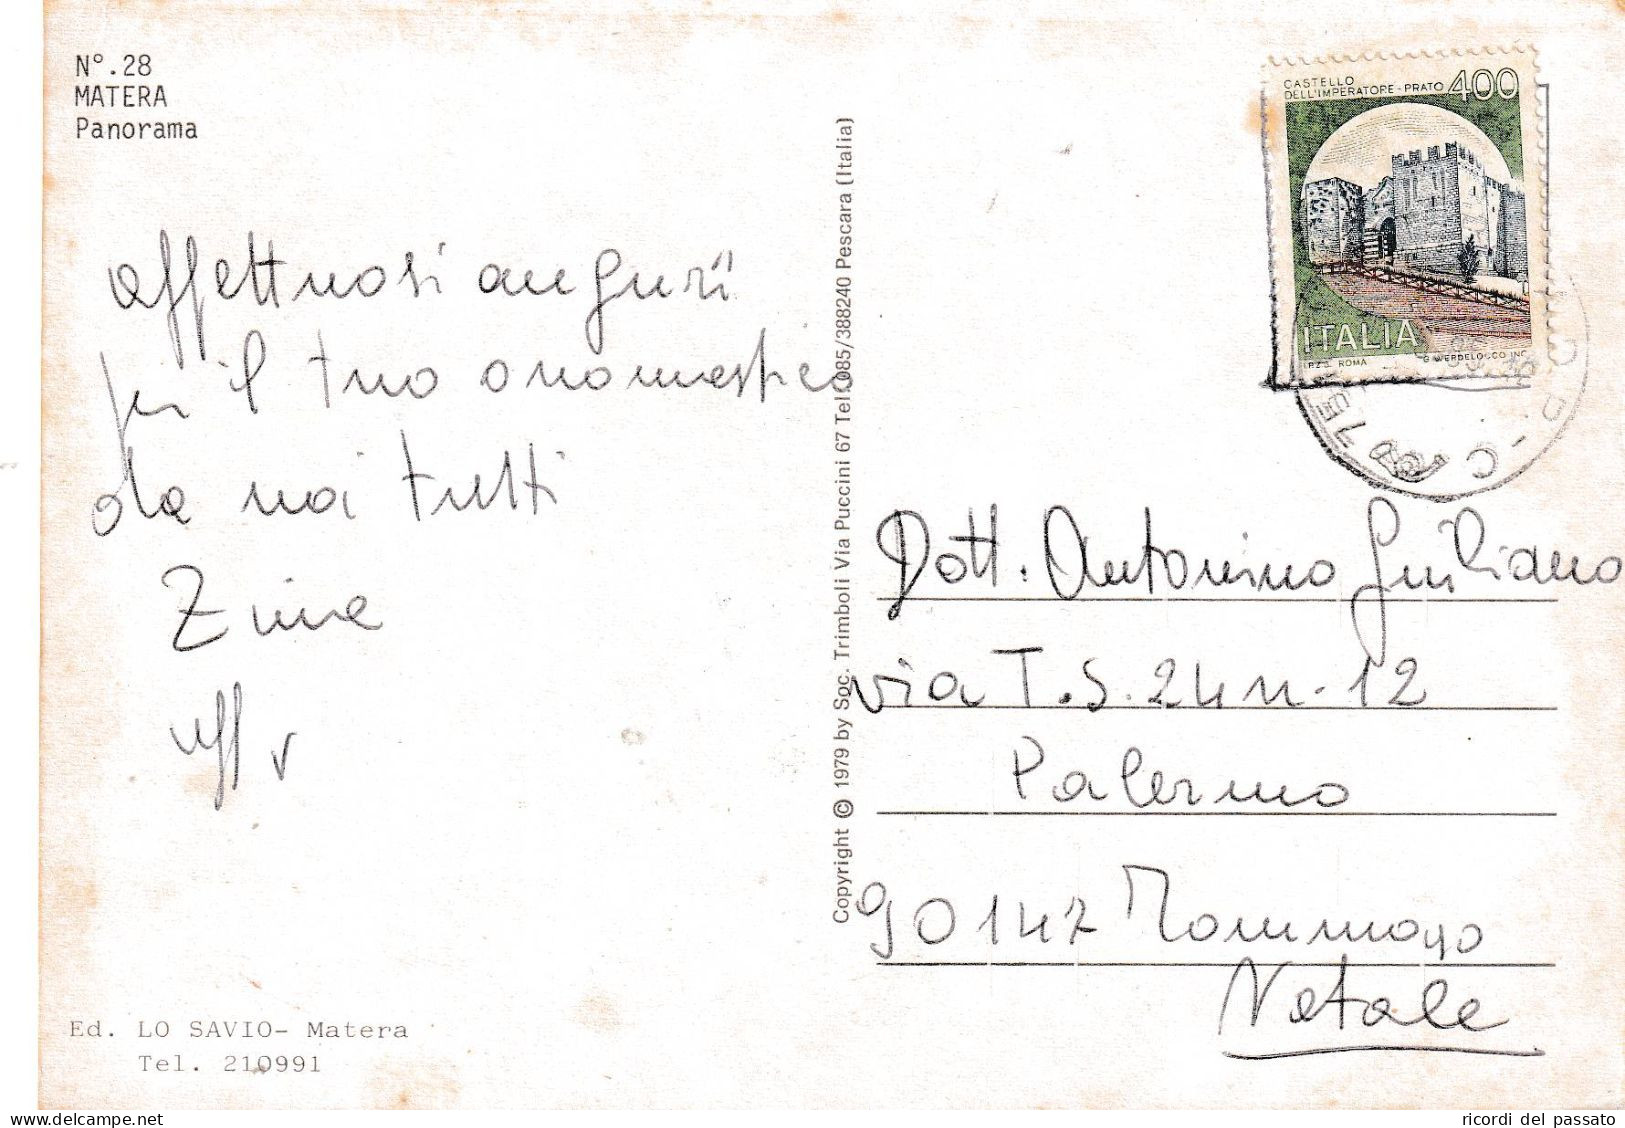 N°.28
MATERA
Panorama
affettuosi auguri
per il tuo onomastico
da noi tutti
Zina
Ed. LO SAVIO- Matera
Tel. 210991
Copyright © 1979 by Soc. Trimboli Via Puccini 67 Tel 085/388240 Pescara (Italia)
CASTELLO
DELL'IMPERATORE - PRATO 400
ITALIA
I.P.Z.S. ROMA
Dott. Antonino Giuliano
via T.S. 24 n. 12
Palermo
90147 Tommaso
Natale
www.delcampe.net
ricordi del passato